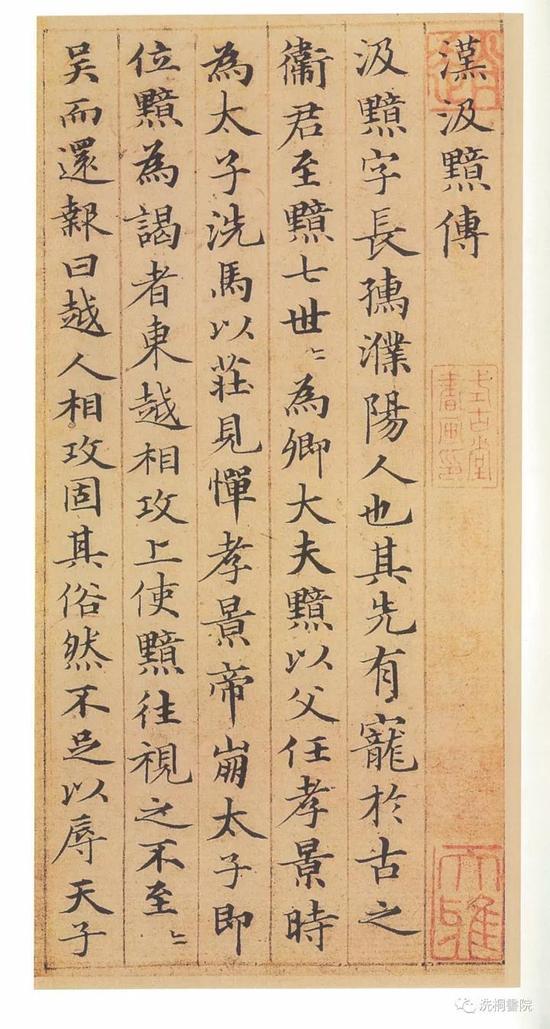 漢汲黯傳
汲黯字長孺濮陽人也其先有寵於古之
衛君至黯七世〻為卿大夫黯以父任孝景時
為太子洗馬以莊見憚孝景帝崩太子即
位黯為謁者東越相攻上使黯往視之不至〻
吳而還報曰越人相攻固其俗然不足以辱天子
大雅
洗桐書院